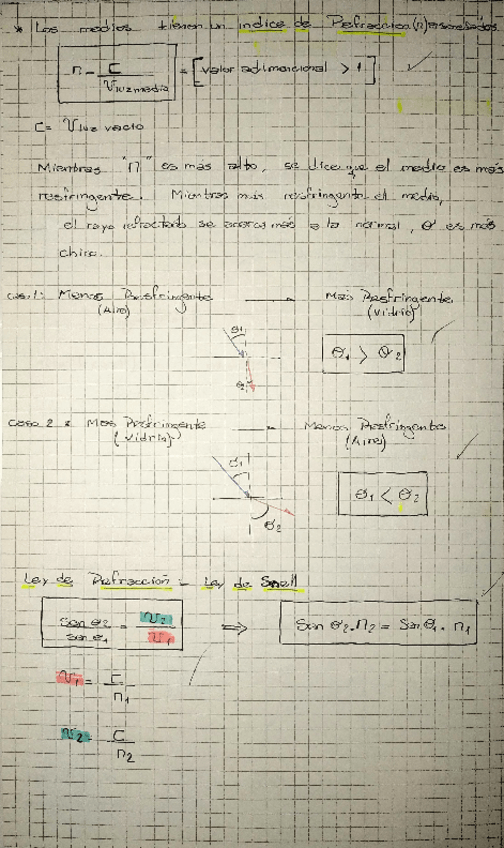 * Los medios tienen un indice de Refracción (n) asociados.
n = C / Vluz medio = [valor adimensional > 1]
C = Vluz vacío
Mientras "n" es más alto, se dice que el medio es más
resfringente. Mientras más resfringente el medio,
el rayo refractado se acerca más a la normal, θ es más
chico.
caso 1: Menos Resfringente → Más Resfringente
(Aire) (vidrio)
θ1
θ1 > θ2
θ2
Caso 2: Mas Resfringente → Menos Resfringente
(vidrio) (Aire)
θ1
θ1 < θ2
θ2
Ley de Refracción = Ley de Snell
Sen θ2 / sen θ1 = V2 / V1 ⇒ Sen θ2 . n2 = Sen θ1 . n1
V1 = C / n1
V2 = C / n2